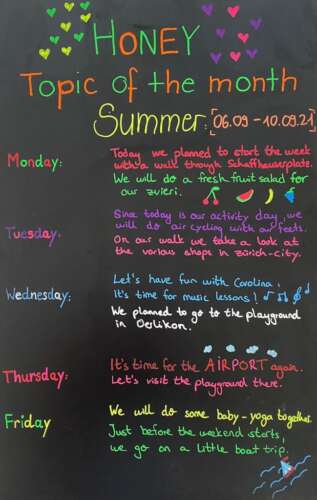 HONEY
Topic of the month
Summer: [06.09 - 10.09.21]
Monday: Today we planned to start the week
with a walk through Schaffhauserplatz.
We will do a fresh fruit salad for
our zvieri.
Tuesday: Since today is our activity day, we
will do air cycling with our feets.
On our walk we take a look at
the various shops in Zürich-city.
Wednesday: Let's have fun with Carolina,
it's time for music lessons!
We planned to go to the playground
in Oerlikon.
Thursday: It's time for the AIRPORT again.
Let's visit the playground there.
Friday We will do some baby-yoga together.
Just before the weekend starts,
we go on a little boat trip.